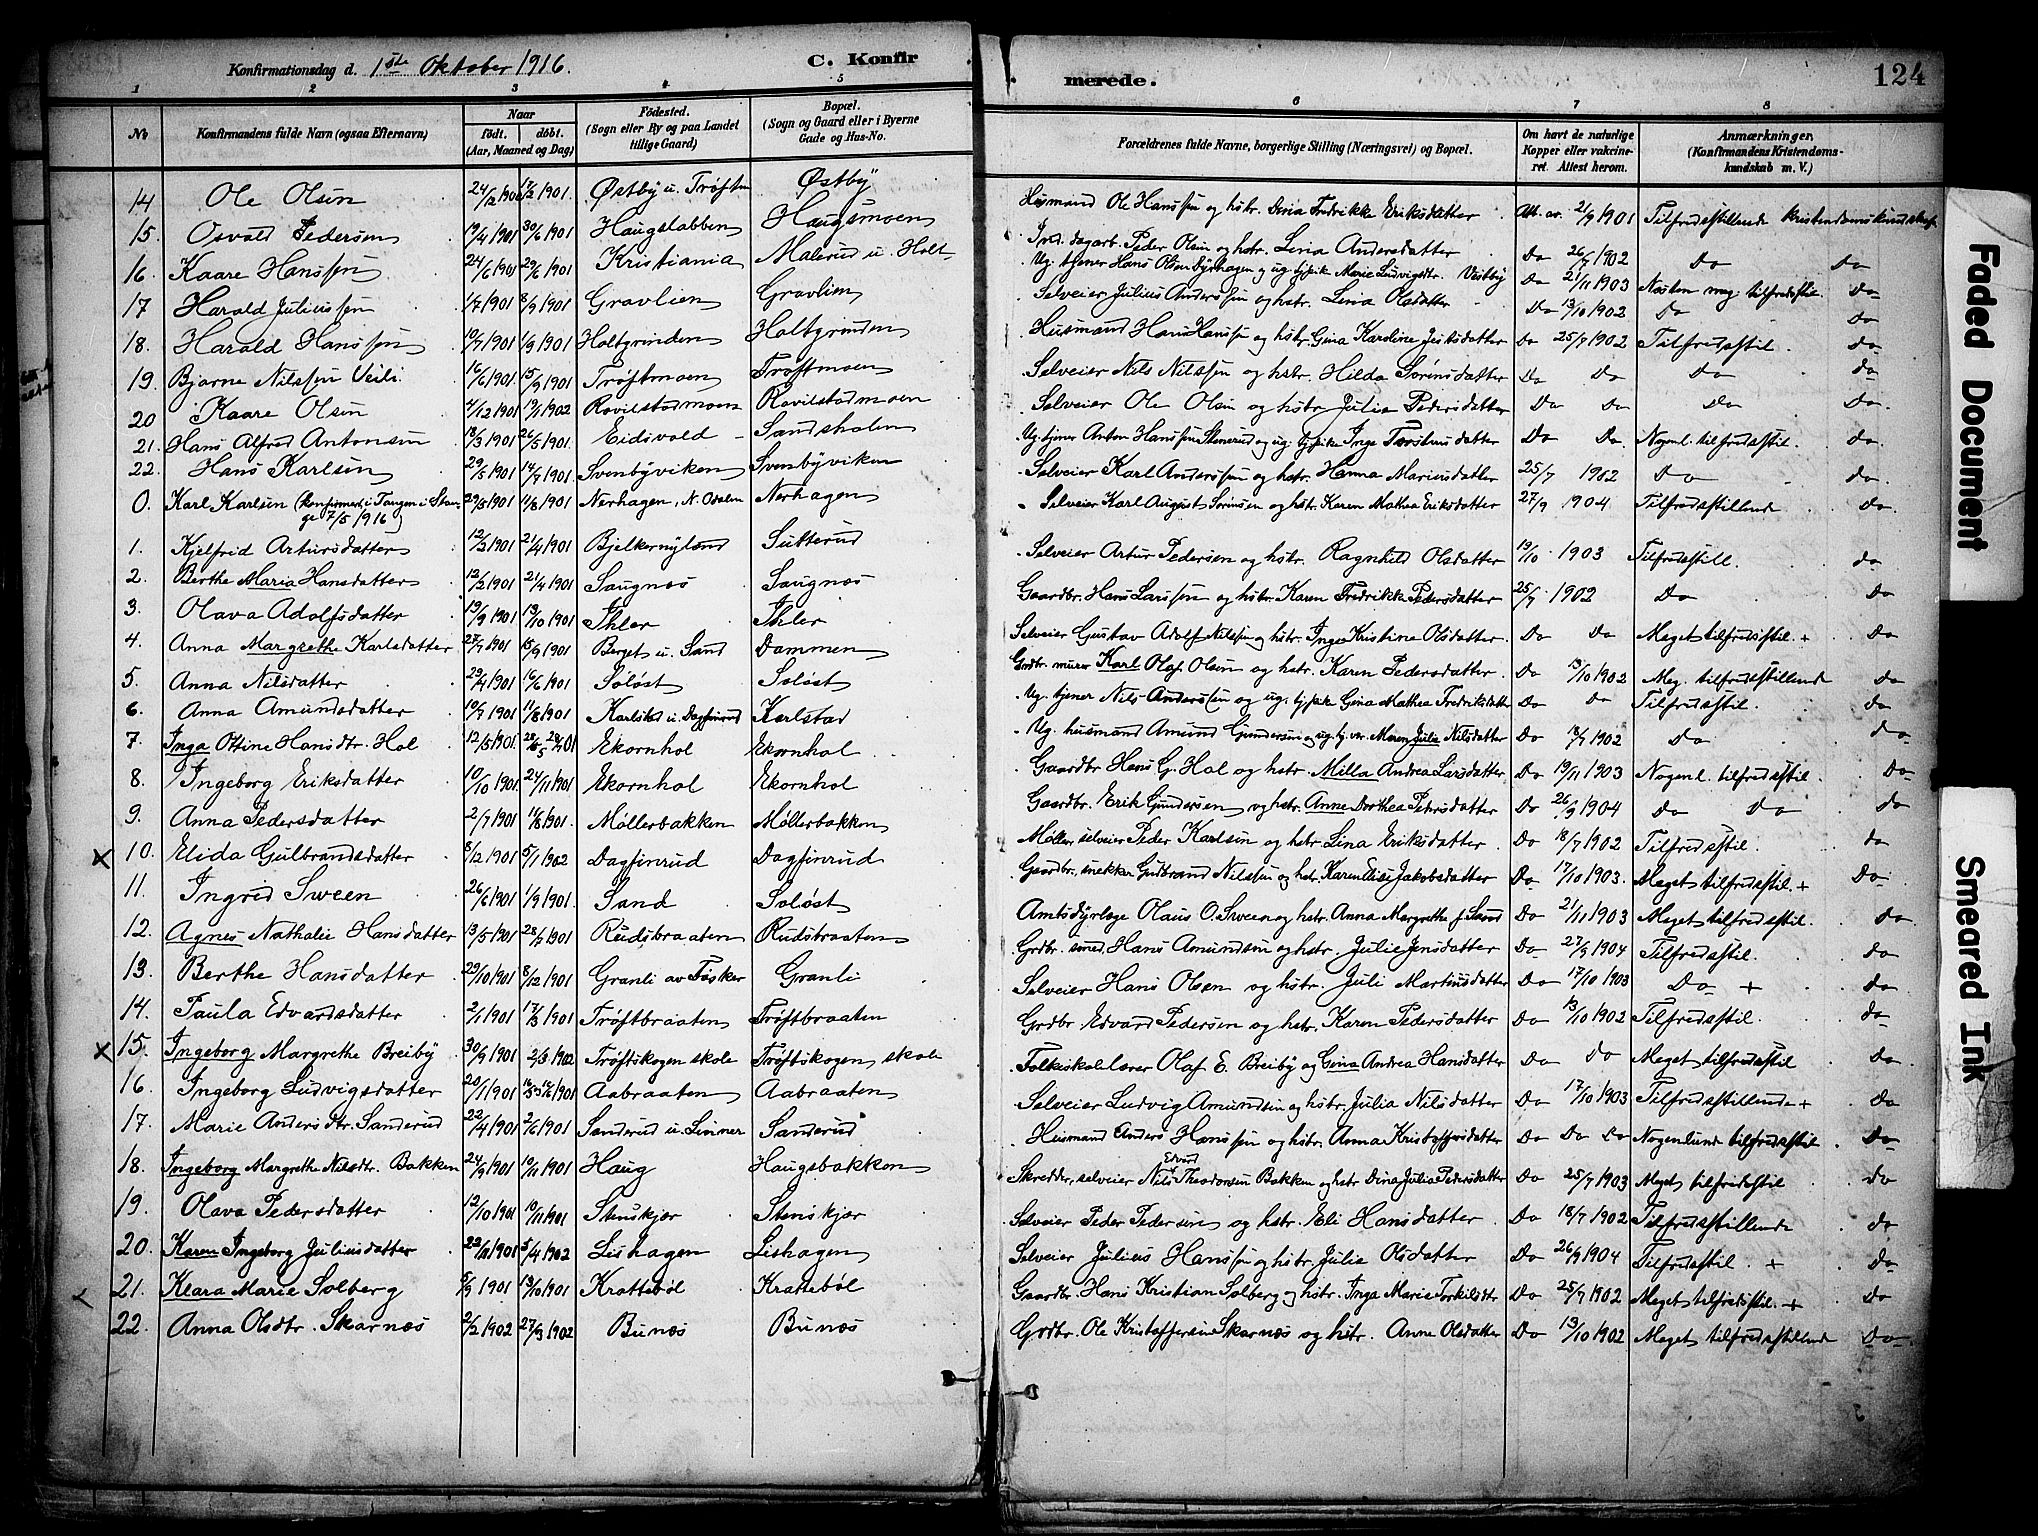 Konfirmationsdag d. 1ste Oktober 1916. C. Konfir merede. 124
1 2 3 4 5 6 7 8
No Konfirmandens fulde Navn (ogsaa Efternavn) Naar født. døbt. (Aar, Maaned og Dag) Fødested. (Sogn eller By og paa Landet tillige Gaard) Bopæl. (Sogn og Gaard eller i Byerne Gade og Hus-No. Forældrenes fulde Navne, borgerlige Stilling (Næringsvei) og Bopæl. Om havt de naturlige Kopper eller vakcineret. Attest herom. Anmærkninger, (Konfirmandens Kristendomskundskab m. V.)
14 Ole Olsen 24/2 1901 17/3 1901 Østby u. Trøften Østby Husmand Ole Hanssen og hstr. Dina Fredrikke Eriksdatter Att. av. 2/9 1901 Tilfredsstillende kristendomskundskap
15. Osvald Pedersen 19/4 1901 30/6 1901 Haugslabben Haugsmoen Ind. dagarb. Peder Olsen og hstr. Lina Andersdatter Do 26/9 1902 Do Do
16. Kaare Hanssen 24/6 1901 29/6 1901 Kristiania Malerud u. Holt Ug. tjener Hans Olsen Byrhagen og ug. tjpike Marie Ludvigsdtr. Vestby Do 2/11 1903 Næsten meg. tilfredsstil. Do
17 Harald Juliussen 1/7 1901 8/9 1901 Gravlien Gravlien Selveier Julius Anderssen og hstr. Lina Olsdatter Do 13/10 1902 Do Do
18. Harald Hanssen 10/7 1901 1/9 1901 Holtgrinden Holtgrinden Husmand Hans Hanssen og hstr. Gina Karoline Jensdatter Do 25/7 1902 Tilfredsstil. Do
19. Bjarne Nilssen Veili 16/6 1901 15/9 1901 Trøftmoen Trøftmoen Selveier Nils Nilssen og hstr. Hilda Sørensdatter Do Do Do Do
20 Kaare Olsen 4/12 1901 19/1 1902 Rovilstadmoen Rovilstadmoen Selveier Ole Olsen og hstr. Julia Pedersdatter Do Do Do Do.
21. Hans Alfred Antonsen 18/3 1901 26/5 1901. Eidsvold Sandsholen Ug. tjener Anton Hanssen Stenerud og ug. tjpike Inge Torstensdatter Do Do Nogenl. tilfredsstil. Do.
22. Hans Karlsen 29/5 1901 14/7 1901. Svenbyviken Svenbyviken Selveier Karl Anderssen og hstr. Hanna Mariusdatter 25/7 1902 Do Do.
0. Karl Karlsen (konfirmert i Tangen i Stange 7/5 1916) 29/5 1901 11/8 1901 Nerhagen, N. Odalen Nerhagen Selveier Karl August Sørensen og hstr. Karen Mathea Eriksdatter 27/9 1904 Tilfredsstillende Do.
1. Kjelfrid Artursdatter 12/2 1901 21/4 1901 Bjelkernyland Sutterud Selveier Artur Pedersen og hstr. Ragnhild Olsdatter 19/10 1903 Tilfredsstill. Do
2. Berthe Maria Hansdatter 12/2 1901 21/4 1901 Saugnæs Saugnæs Gaardbr. Hans Larssen og hstr. Karen Fredrikke Pedersdatter 25/7 1902 Do Do
3. Olava Adolfsdatter 19/9 1901 13/10 1901 Ihler Ihler Selveier Gustav Adolf Nilssen og hstr. Inge Kristine Olsdatter. Do Do Meget tilfredsstil. + Do
4. Anna Margrethe Karlsdatter 27/7 1901 15/9 1901 Berget u. Sand Dammen Grdbr. murer Karl Olaf Olsen og hstr. Karen Pedersdatter Do 13/10 1902 Meg. tilfredsstillende Do
5. Anna Nilsdatter 29/4 1901 16/6 1901 Soløst Soløst Ug. tjener Nils Anderssen og ug. tjpike Gina Mathea Fredriksdatter Do Do Tilfredsstil. Do
6. Anna Amundsdatter 19/7 1901 11/8 1901 Karlstad u. Dagfinrud Karlstad Ug. husmand Amund Gundersen og ug. tj. Maren Julia Nilsdatter Do 18/7 1902 Do Do
7. Inga Ottine Hansdtr. Hol 12/5 1901. Ekornhol Ekornhol Gaardbr Hans G. Hol og hstr. Milla Andrea Larsdatter Do 19/11 1903 Nogenl. tilfredsstil. Do
8. Ingeborg Eriksdatter 10/10 1901 24/11 1901 Ekornhol Ekornhol Gaardbr. Erik Gundersen og hstr. Anne Dorthea Petersdatter Do 26/9 1904 Do Do Do
9. Anna Pedersdatter 2/7 1901 11/8 1901. Møllerbakken Møllerbakken Møller, selveier Peder Karlsen og hstr Lina Eriksdatter. Do 18/7 1902 Tilfredsstil. Do
x 10. Elida Gulbrandsdatter 8/12 1901 5/1 1902 Dagfinrud Dagfinrud Gaardbr. snekker Gudbrand Nilssen og hstr. Karen Elise Jakobsdatter Do 17/10 1903. Meget tilfredsstil + Do
11. Ingrid Sween 26/6 1901 1/9 1901. Sand Soløst Amtsdyrlæge Olaus O. Sween og hstr. Anna Margrethe f. Sand Do 21/11 1903 Meget tilfredsstil. Do
12. Agnes Nathalie Hansdatter 13/5 1901 28/7 1901 Rudsbraaten Rudsbraaten Grdbr. smed Hans Amundsen og hstr. Julie Jensdatter Do 27/9 1904 Tilfredsstil. Do
13. Berthe Hansdatter 29/10 1901 8/12 1901 Granli av Fosker Granli Selveier Hans Olsen og hstr. Juli Martinusdatter Do 17/10 1903 Do + Do
14. Paula Edvardsdatter 2/1 1901 17/3 1901 Trøftbraaten Trøftbraaten Grdbr Edvard Pedersen og hstr. Karen Pedersdatter Do 13/10 1902 Tilfredsstil. Do
x 15. Ingeborg Margrethe Breiby 30/9 1901 2/3 1902 Trøftskogen skole Trøftskogen skole Folkeskolelærer Olaf E. Breiby og Gina Andrea Hansdatter Do Do Meget tilfredsstil Do
16. Ingeborg Ludvigsdatter 20/1 1901 Aabraaten Aabraaten Selveier Ludvig Amundsen og hstr Julia Nilsdatter Do 17/10 1903 Tilfredsstillende + Do
17. Marie Andersdtr. Sanderud 22/4 1901 2/6 1901 Sanderud u. Linner Sanderud Husmand Anders Hanssen og hstr. Anna Kristoffersdatter Do Do Do Nogenlunde tilfredsstil. Do
18. Ingeborg Margrethe Nilsdtr. Bakken 24/9 1901 10/11 1901 Haug Haugsbakken Skredder, selveier Nils Edvard Theodorsen Bakken og hstr Dina Julia Pedersdatter Do 25/7 1903 Meget tilfredsstil Do
19. Olava Pedersdatter 12/10 1901 10/11 1901. Stenskjær Stenskjær Selveier Peder Pedersen og hstr. Eli Hansdatter. Do 18/7 1902 Tilfredsstillende Do
20. Karen Ingeborg Juliusdatter 22/11 1901 5/4 1902 Lishagen Lishagen Selveier Julius Hanssen og hstr Julie Olsdatter Do 26/9 1904 Tilfredsstil. + Do
21. Klara Marie Solberg 5/9 1901 13/10 1901 Krattebøl Krattebøl Gaardbr. Hans Kristian Solberg og hstr. Inga Marie Torkilsdtr Do 25/7 1902 Meget tilfredsstil. + Do
22. Anna Olsdtr. Skarnæs 2/2 1902 27/3 1902 Bunæs Bunæs Grdbr. Ole Kristoffersen Skarnæs og hstr. Anne Olsdatter Do 13/10 1902 Meget tilfredsstillende Do
Faded Document
Smeared Ink